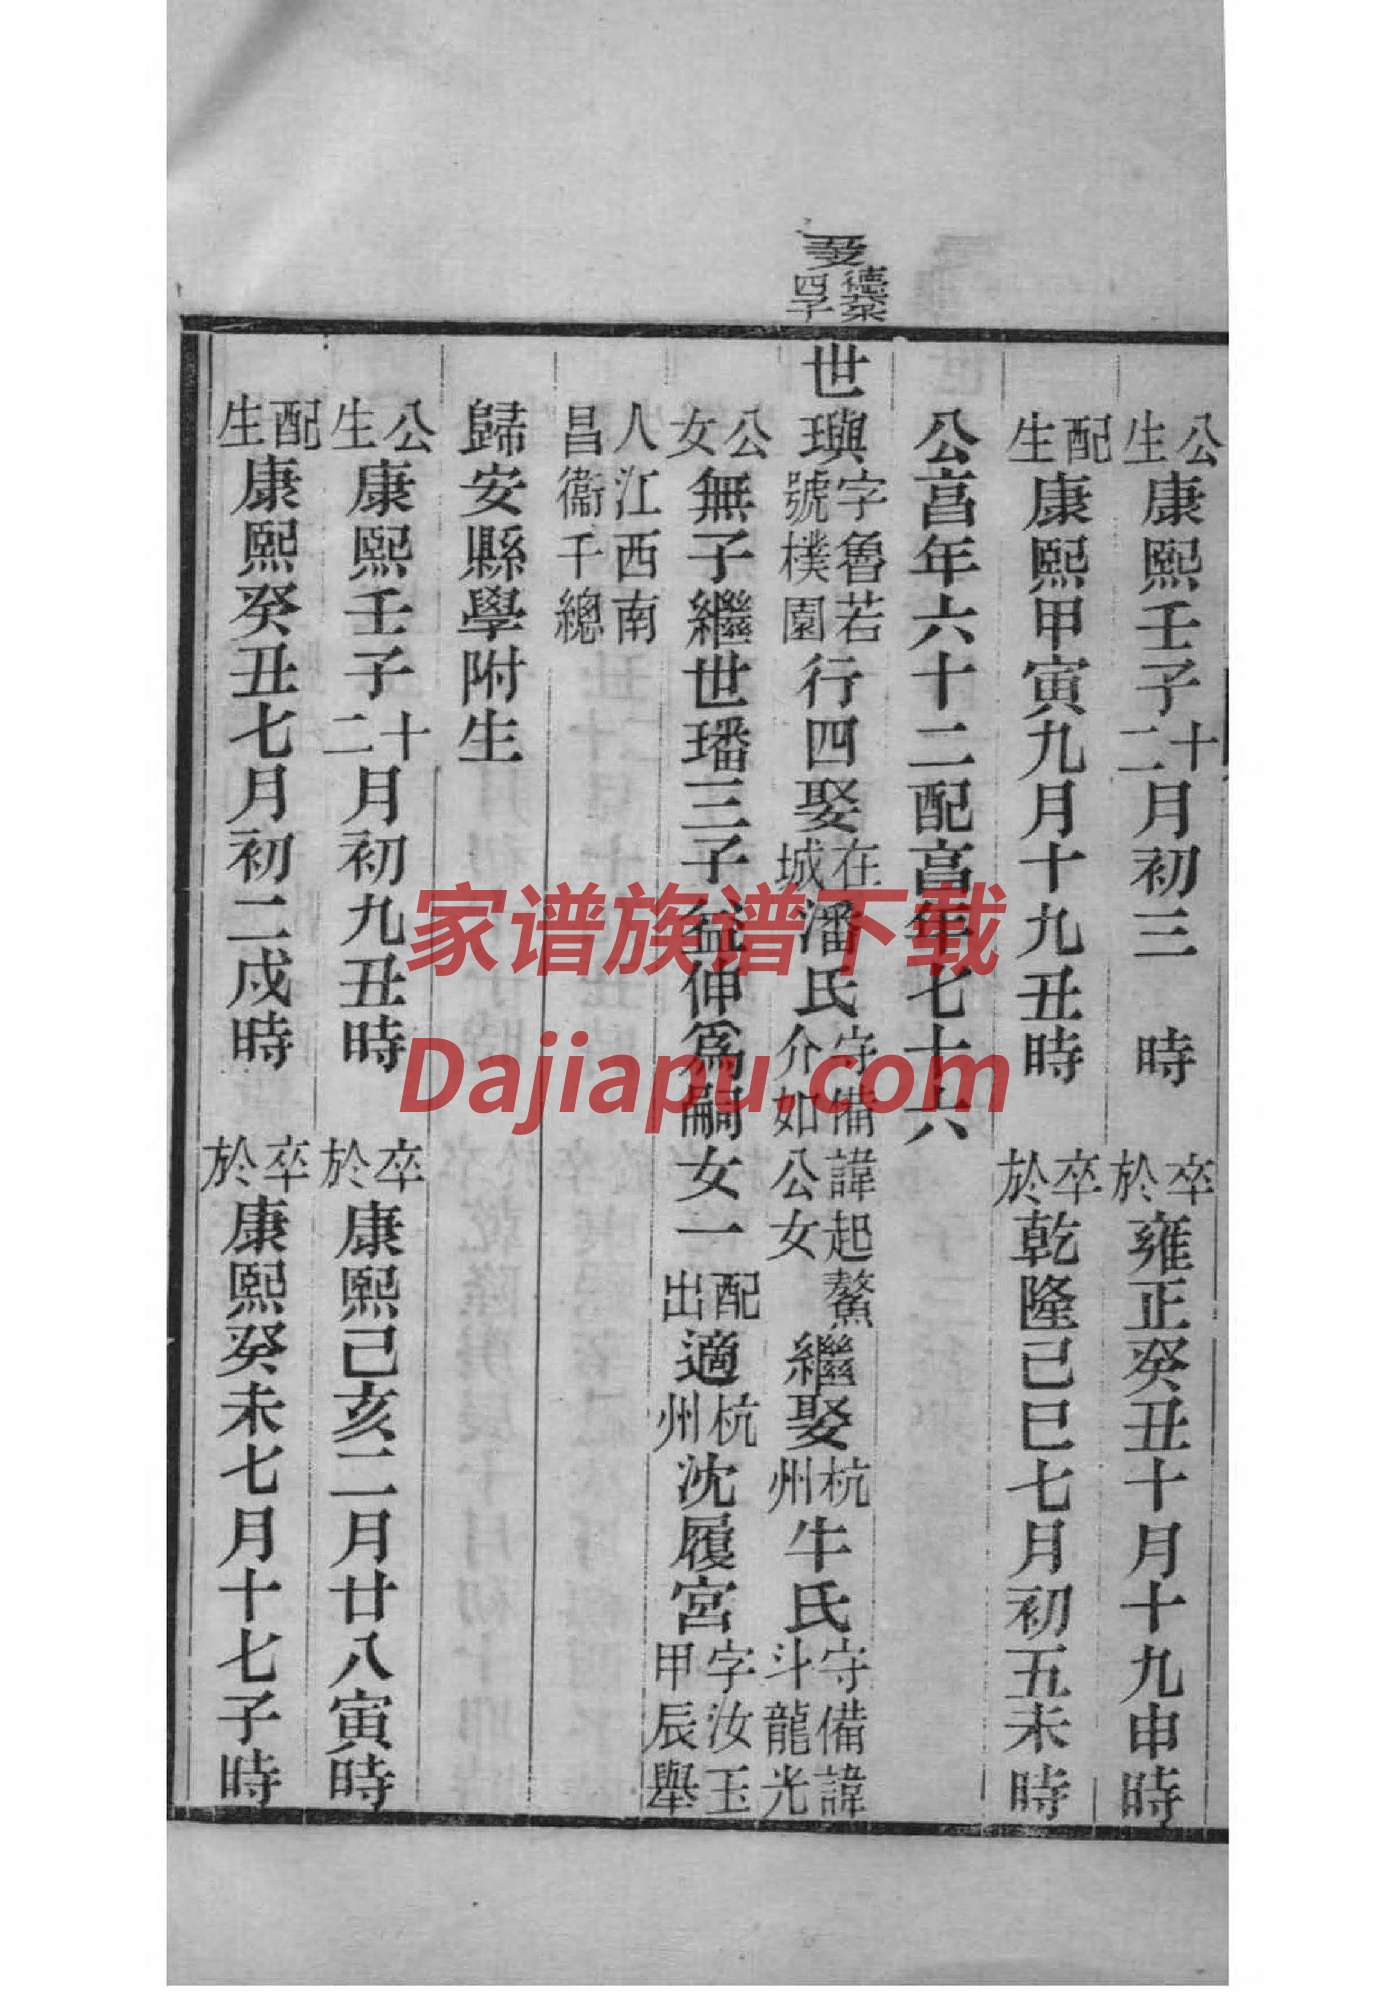 公生康熙壬子十二月初三 時 卒於雍正癸丑十月十九申時
配生康熙甲寅九月十九丑時 卒於乾隆己巳七月初五未時
公亯年六十二配亯年七十六
德 四子
世璵字魯若號樸園行四娶在城潘氏守備諱起鰲介如公女繼娶杭州牛氏守備諱斗龍光
公女無子繼世璠三子益伸爲嗣女一配出適杭州沈履宮字汝玉甲辰舉
人江西南昌衞千總
歸安縣學附生
公生康熙壬子十二月初九丑時 卒於康熙己亥二月廿八寅時
配生康熙癸丑七月初二戌時 卒於康熙癸未七月十七子時
家谱族谱下载
Dajiapu.com